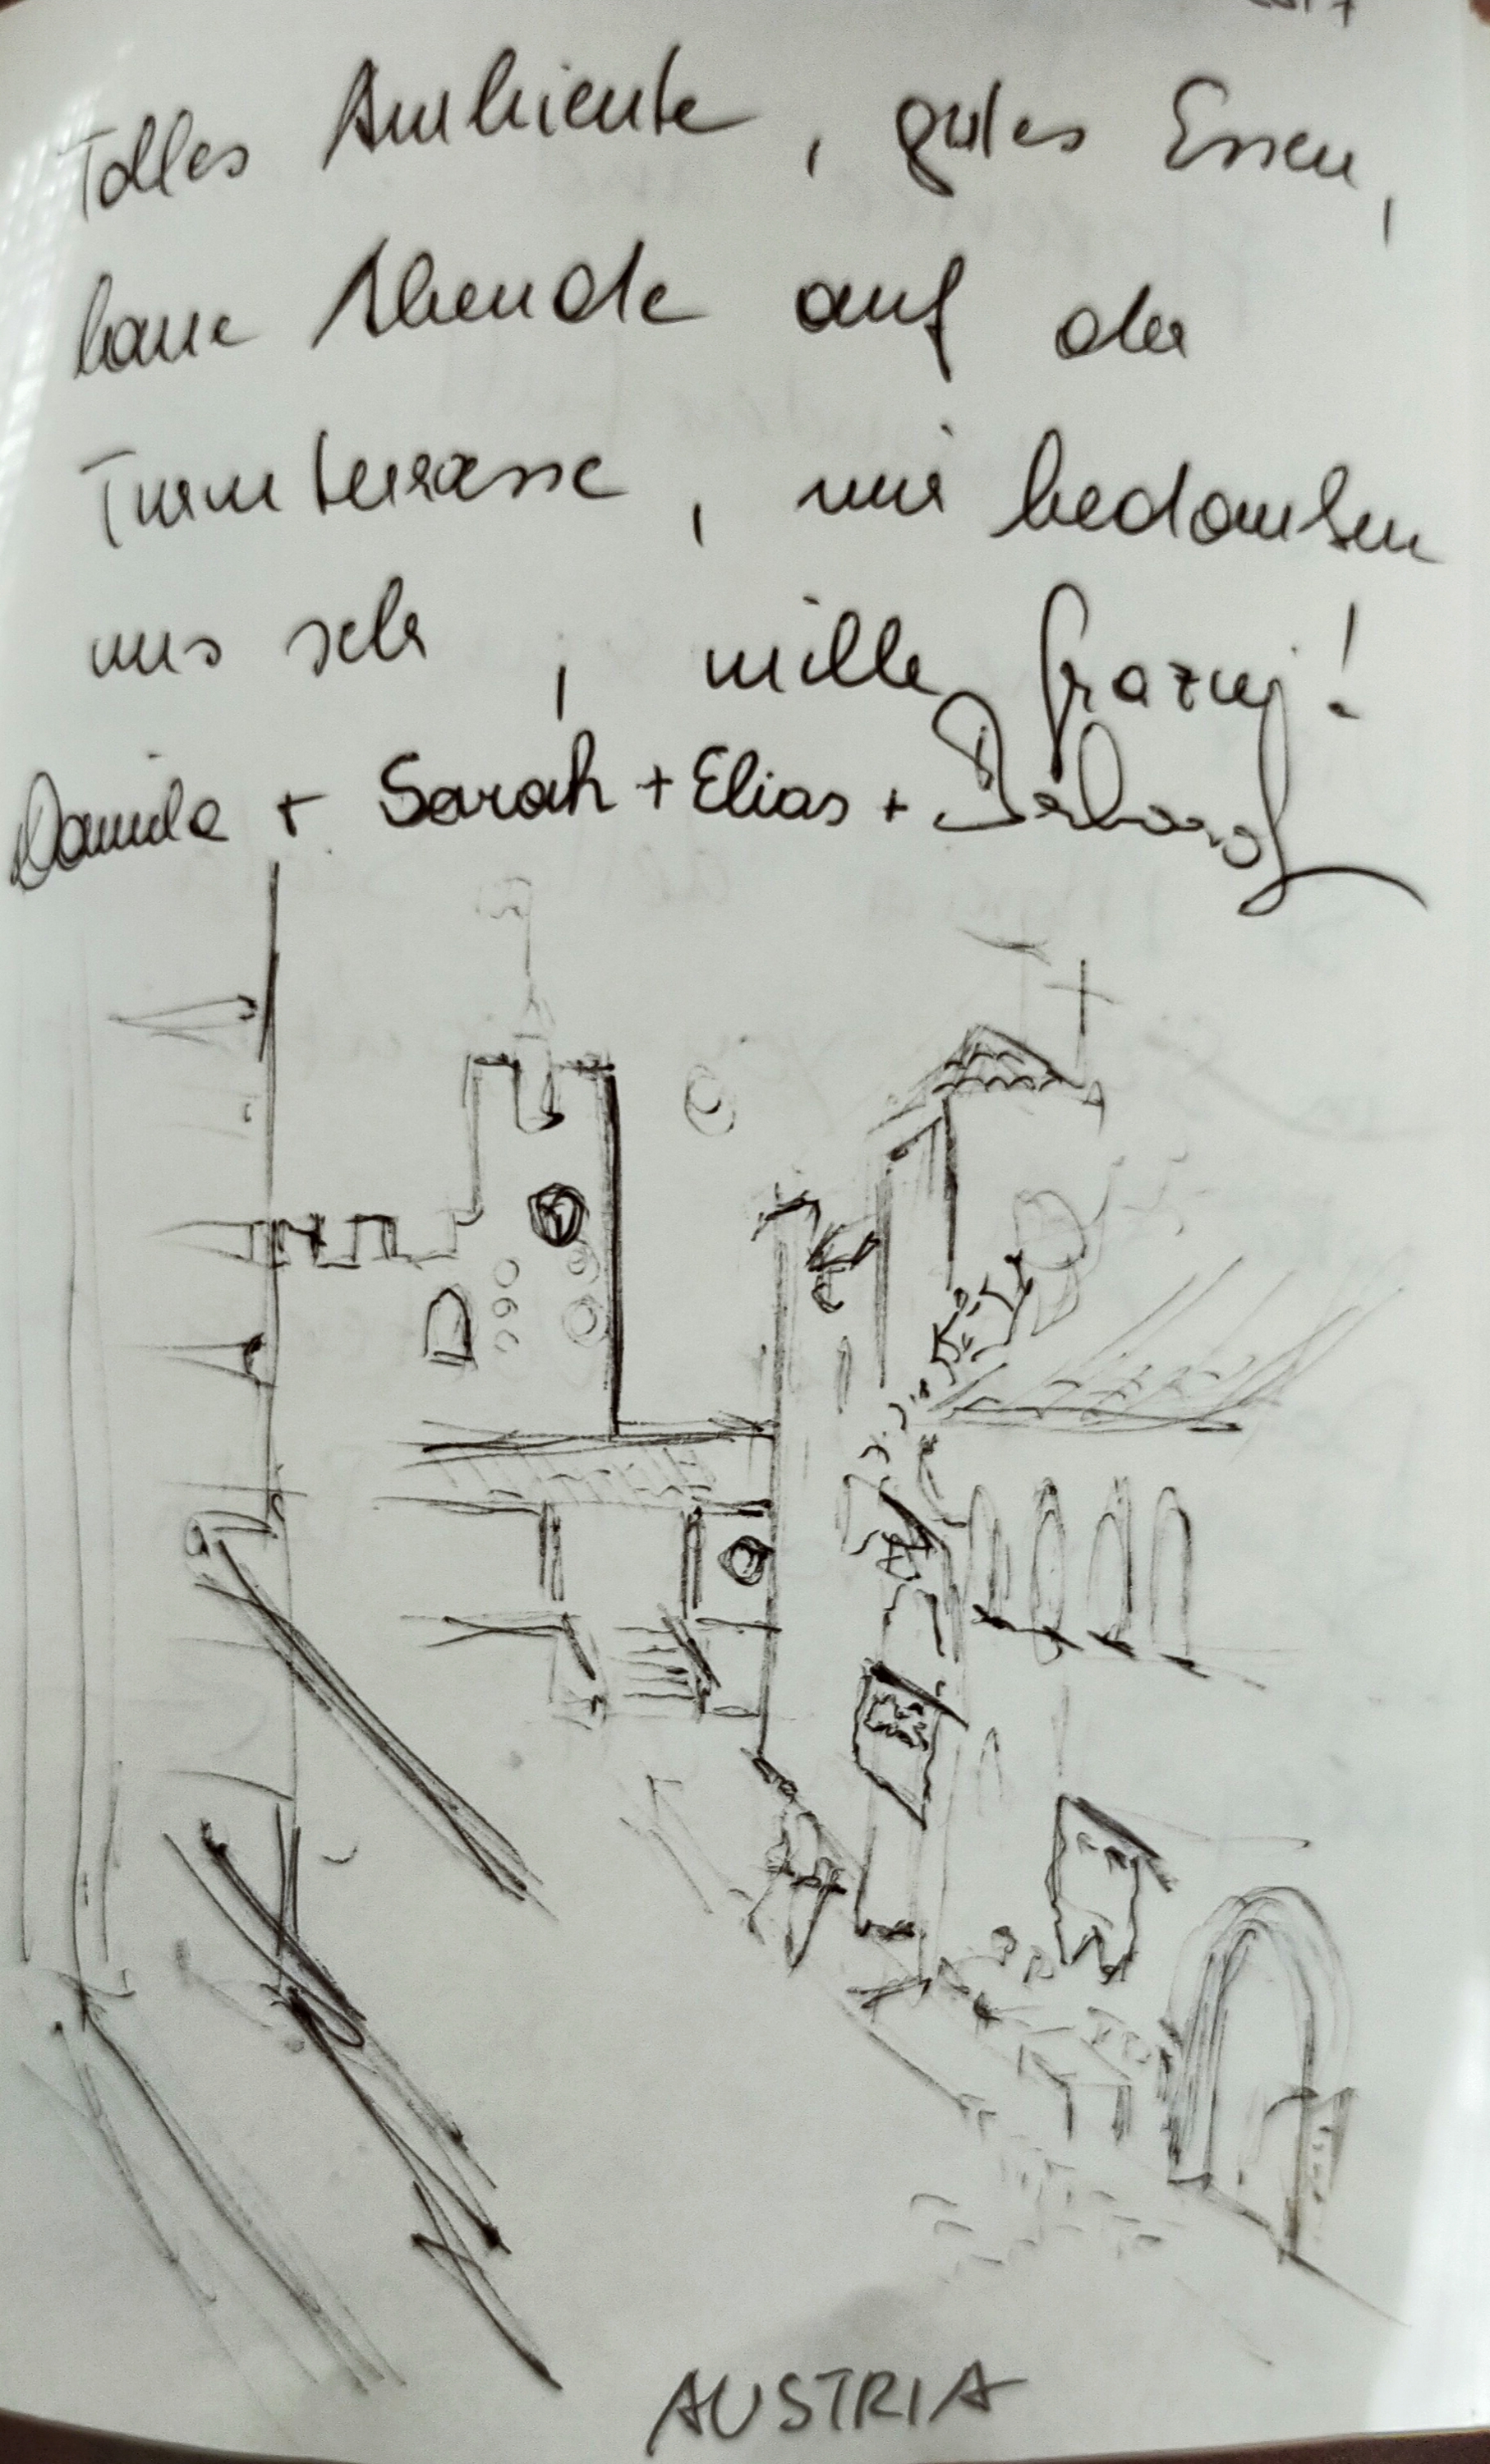 Tolles Ambiente, gutes Essen,
laue Abende auf der
Turmterrasse, wir bedanken
uns sehr, mille
Daniela + Sarah + Elias +
AUSTRIA